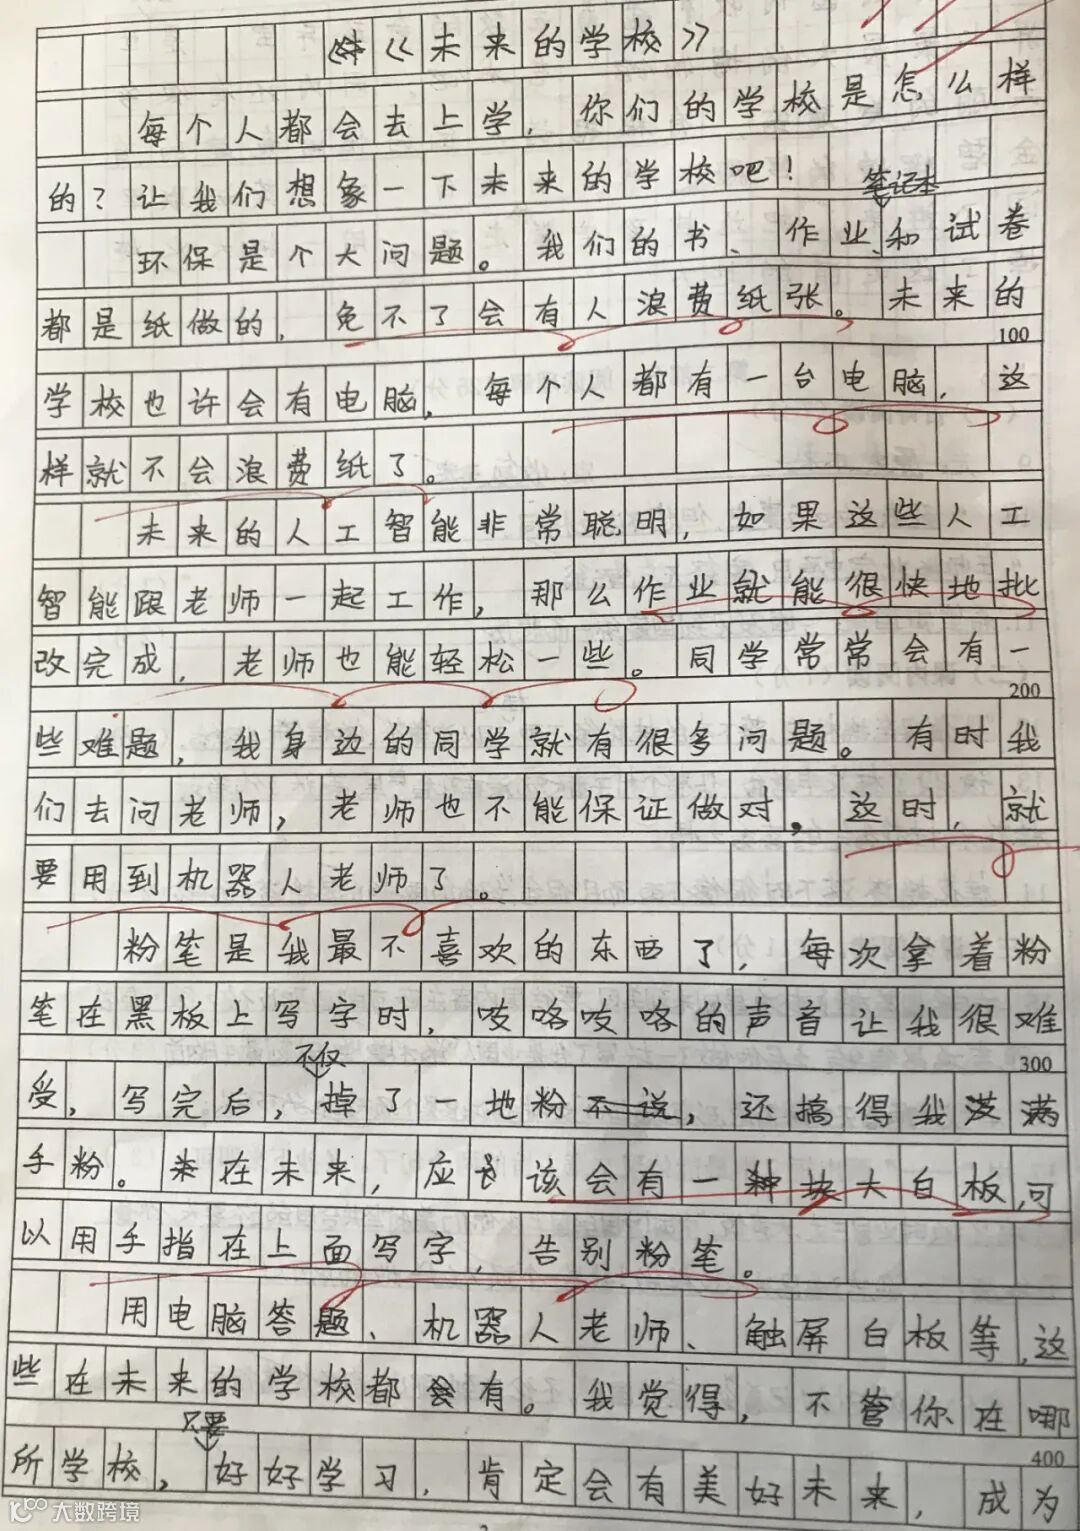 《未来的学校》
每个人都会去上学，你们的学校是怎么样
的？让我们想象一下未来的学校吧！
笔记本
环保是个大问题。我们的书、作业、和试卷
都是纸做的，免不了会有人浪费纸张。未来的
100
学校也许会有电脑，每个人都有一台电脑，这
样就不会浪费纸了。
未来的人工智能非常聪明，如果这些人工
智能跟老师一起工作，那么作业就能很快地批
改完成，老师也能轻松一些。同学常常会有一
200
些难题，我身边的同学就有很多问题。有时我
们去问老师，老师也不能保证做对，这时，就
要用到机器人老师了。
粉笔是我最不喜欢的东西了，每次拿着粉
笔在黑板上写字时，吱咯吱咯的声音让我很难
300
不仅
受，写完后，掉了一地粉不说，还搞得我满
手粉。在未来，应该会有一块大白板，可
以用手指在上面写字，告别粉笔。
用电脑答题、机器人老师、触屏白板等，这
些在未来的学校都会有。我觉得，不管你在哪
400
只要
所学校，好好学习，肯定会有美好未来，成为
大数跨境